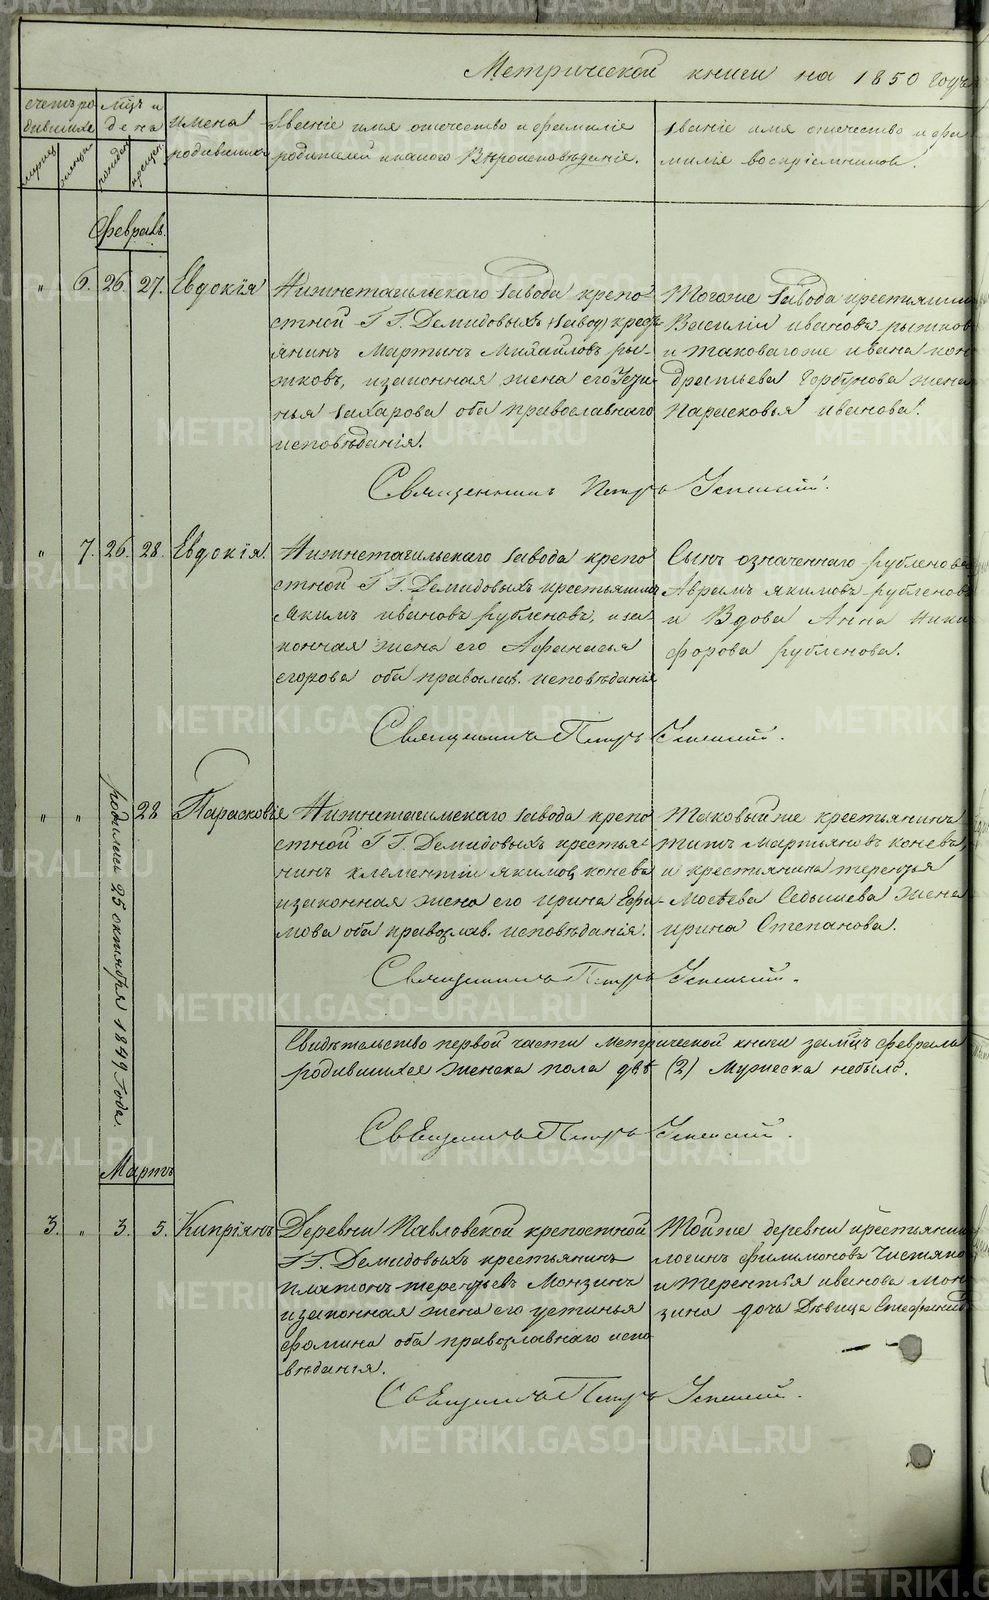 Метрической книги на 1850 годъ
счетъ родившихся
мужеска
женска
Мцъ и день
рожден.
крещен.
имена родившихся
Званіе имя отечество и фамиліе
родителей и какого Вѣроисповѣданіе.
Званіе имя отечество и фамиліе воспріемников.
Февраль.
" 6. 26. 27. Евдокія
Нижнетагильскаго завода крепо-
стной Г Г. Демидовыхъ (завод) крест-
янинъ Мартынъ Михайловъ ры-
жковъ, изаконная жена его
захарова оба православнаго
исповѣданія.
Тогоже завода крестьянинъ
Василій ивановъ рыжков
и таковагоже ивана кон
дратьева Горбунова жена
Парасковья иванова.
Священникъ Петръ Успенскій.
" 7. 26. 28. Евдокія.
Нижнетагильскаго завода крепо
стной Г Г. Демидовыхъ крестьянинъ
Якимъ ивановъ рубленовъ, иза
конная жена его Афанасья
егорова оба православ. исповѣданія
Сынъ означеннаго рубленова
Аврамъ якимовъ рубленовъ
и Вдова Анна Ники
форова рубленова.
Священникъ Петръ Успенскій.
" " родилась 25 октября 1849 года. 28 Парасковіе
Нижнетагильскаго завода крепо
стной Г Г. Демидовыхъ крестья-
нинъ клементій якимов конева
изаконная жена его ирина Ефи-
мова оба православ. исповѣданія.
Таковыйже крестьянинъ
титъ Мартьяновъ коневъ,
и крестьянина терентья
Мосѣева Седышева жена
ирина Степанова.
Священникъ Петръ Успенскій.
Свидѣтельство первой части метрической книги замцъ февраль
родившихся женска пола двѣ (2) Мужеска небыло.
Священникъ Петръ Успенскій.
Мартъ
3. " 3. 5. Кипріянъ
Деревни Павловской крепостной
Г Г. Демидовыхъ крестьянинъ
платонъ терентьевъ Монзинъ
изаконная жена его устинья
фомина оба православнаго испо
вѣданія.
Тойже деревни крестьянин
логинъ филимоновъ
и терентья иванова Мон
зина дочь Дѣвица
Священникъ Петръ Успенскій.
METRIKI.GASO-URAL.RU